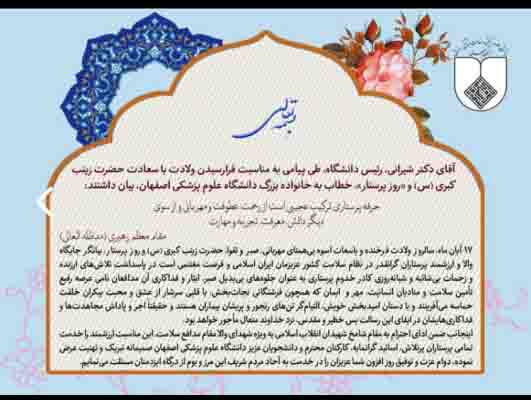 بسمه تعالی
آقای دکتر شیرانی، رئیس دانشگاه، طی پیامی به مناسبت فرارسیدن ولادت با سعادت حضرت زینب
کبری (س) و «روز پرستار»، خطاب به خانواده بزرگ دانشگاه علوم پزشکی اصفهان، بیان داشتند:
حرفه پرستاری ترکیب عجیبی است از رحمت، عطوفت و مهربانی و از سوی
دیگر دانش، معرفت، تجربه و مهارت
مقام معظم رهبری (مدظله العالی)
۱۷ آبان ماه، سالروز ولادت فرخنده و باسعادت اسوه بی‌همتای مهربانی، صبر و تقوا، حضرت زینب کبری (س) و روز پرستار، بیانگر جایگاه
والا و ارزشمند پرستاران گرانقدر در نظام سلامت کشور عزیزمان ایران اسلامی و فرصت مغتنمی است در پاسداشت تلاش‌های ارزنده
و زحمات بی‌شائبه و شبانه‌روزی کادر خدوم پرستاری به عنوان جلوه‌های بی‌بدیل صبر، ایثار و فداکاری آن مدافعان نامی عرصه رفیع
تأمین سلامت و منادیان انسانیت، مهر و ایمان که همچون فرشتگانی نجات‌بخش، با قلبی سرشار از عشق و محبت بیکران خلقت
حماسه می‌آفرینند و با دستان امیدبخش خویش، التیام‌گر تن‌های رنجور و پریشان بیماران هستند و حقیقتاً اجر و پاداش مجاهدت‌ها و
فداکاری‌هایشان در ایفای این رسالت بس خطیر و مقدس، نزد خداوند متعال مأجور خواهد بود.
اینجانب ضمن ادای احترام به مقام شامخ شهدای انقلاب اسلامی به ویژه شهدای والا مقام مدافع سلامت، این مناسبت ارزشمند را خدمت
تمامی پرستاران پرتلاش، اساتید گرانمایه، کارکنان محترم و دانشجویان عزیز دانشگاه علوم پزشکی اصفهان صمیمانه تبریک و تهنیت عرض
نموده، دوام عزت و توفیق روز افزون شما عزیزان را در خدمت به آحاد مردم شریف این مرز و بوم از درگاه ایزد منان مسئلت می‌نمایم.